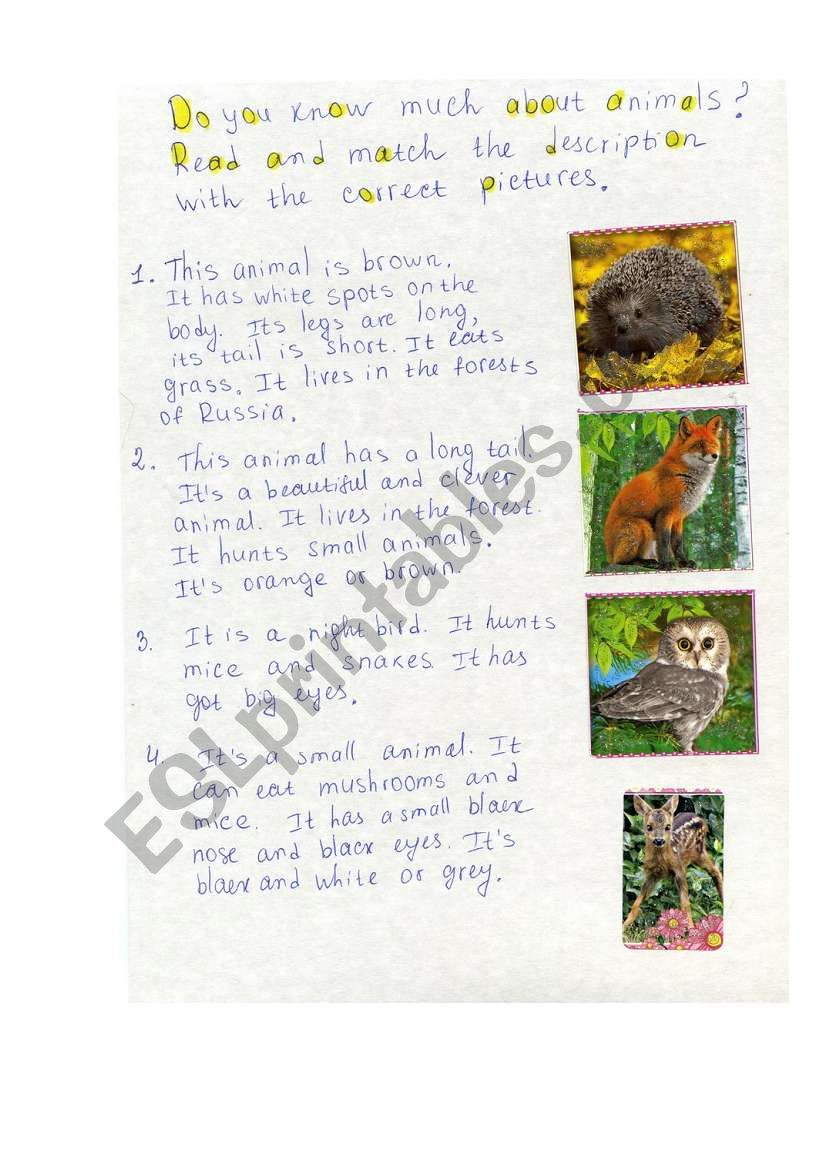 Do you know much about animals?
Read and match the description
with the correct pictures.
1. This animal is brown.
It has white spots on the
body. Its legs are long,
its tail is short. It eats
grass. It lives in the forests
of Russia.
2. This animal has a long tail.
It's a beautiful and clever
animal. It lives in the forest.
It hunts small animals.
It's orange or brown.
3. It is a night bird. It hunts
mice and snakes. It has
got big eyes.
4. It's a small animal. It
can eat mushrooms and
mice. It has a small black
nose and black eyes. It's
black and white or grey.
ESLprintables.c